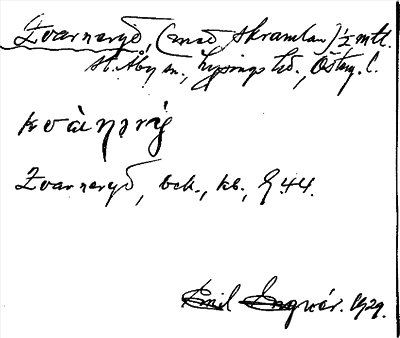 Qvarneryd, (med Skramlan) ½ mtl.
St. Åby sn., Lysings hd., Österg. l.
kvàṇərý
Qvarneryd, bek., kb., § 44.
Emil Engvér. 1929.